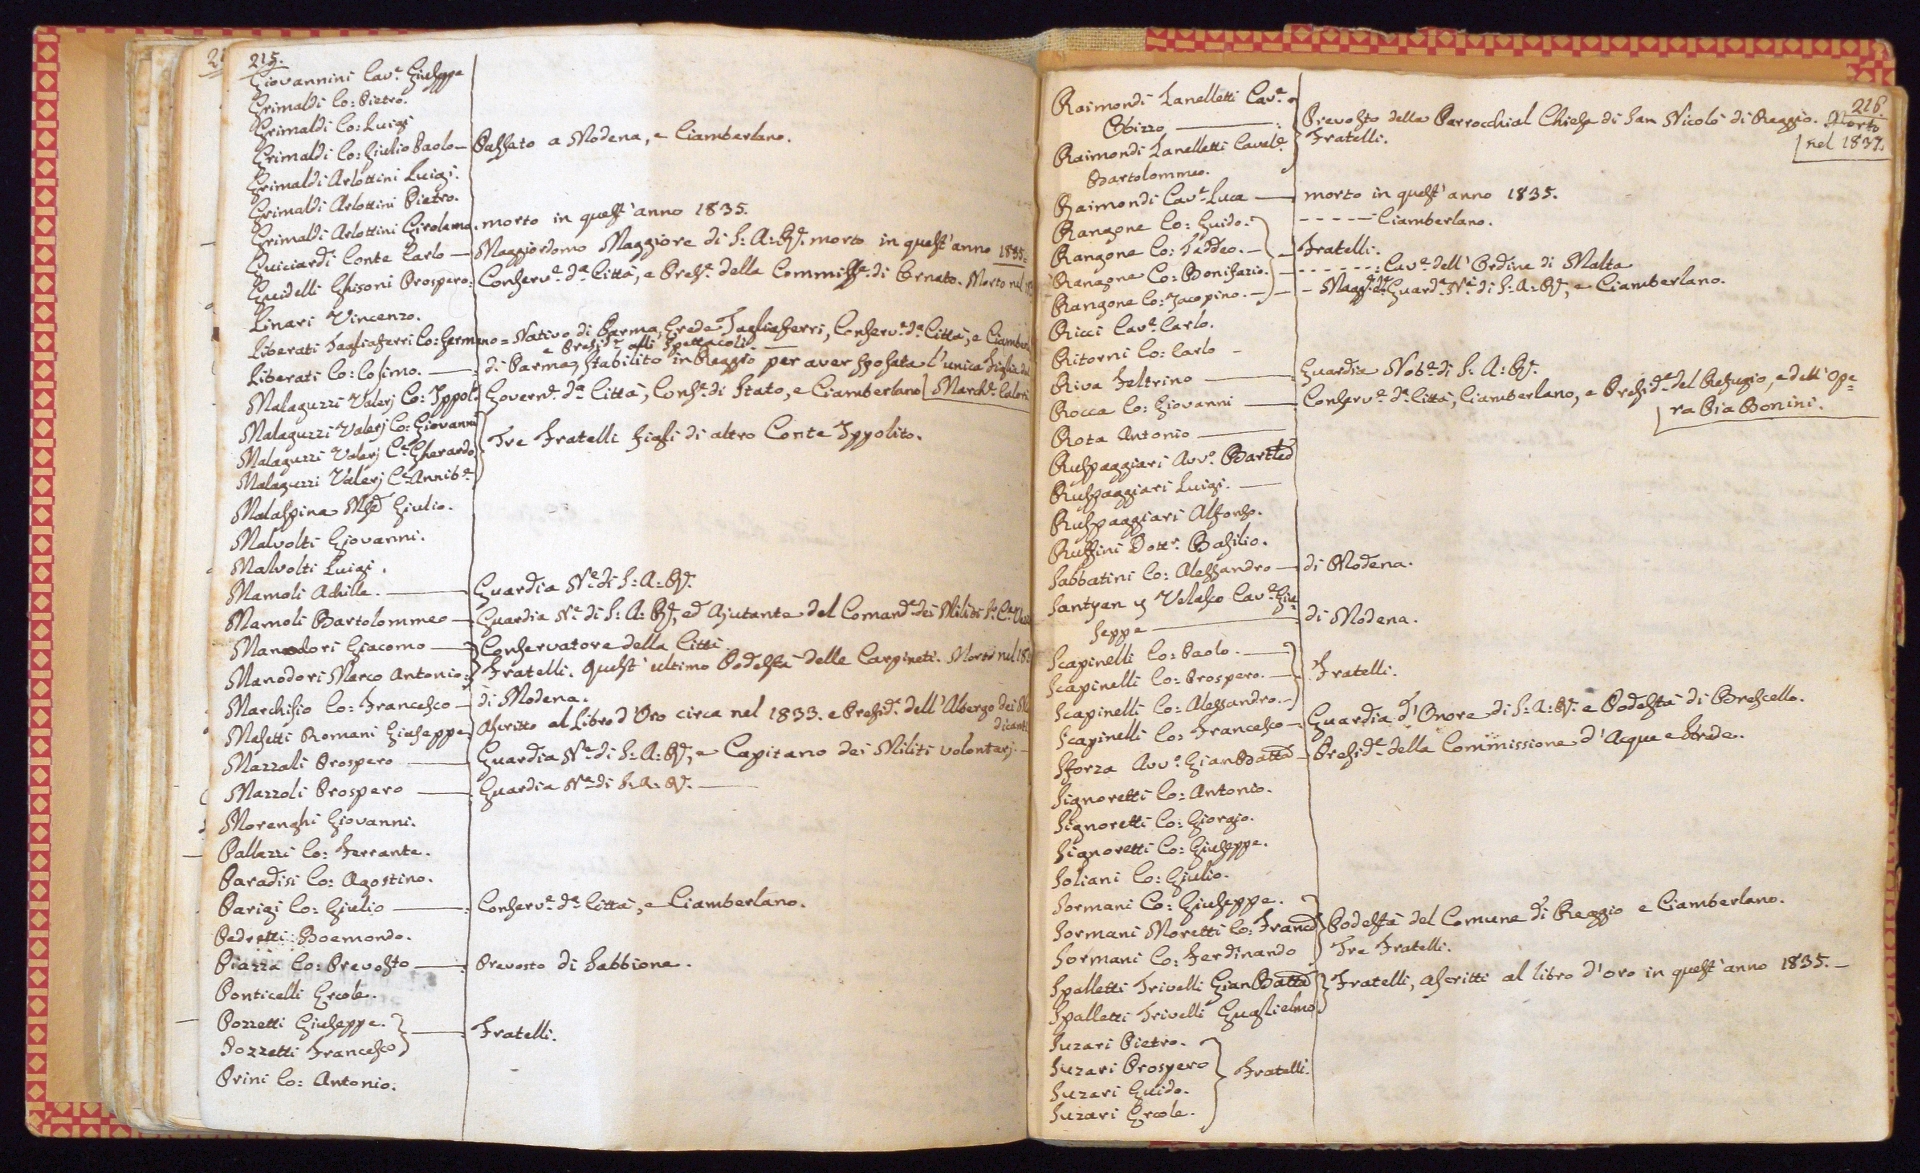 215.
Giovannini Cav.e Giuseppe
Grimaldi Co: Pietro.
Grimaldi Co: Luigi
Grimaldi Co: Giulio Paolo — Passato a Modena, e Ciamberlano.
Grimaldi Arlottini Luigi.
Grimaldi Arlottini Pietro.
Grimaldi Arlottini Girolamo. morto in quest'anno 1835.
Guiciardi Conte Carlo — Maggiordomo Maggiore di S: A: R. morto in quest'anno 1835.
Guidelli Ghisoni Prospero: Conserv.e d.a Città, e Presid.e della Commiss.e di Ornato. Morto nel
Linari Vincenzo.
Liberati Tagliaferri Co: Germano = Nativo di Parma, Erede Tagliaferri, Conserv.e d.a Città, e
e Presid.e agli Spettacoli
Liberati Co: Cosimo. — di Parma, stabilito in Reggio per aver sposata l'unica figlia
Malaguzzi Valerj Co: Ippol. Govern.e d.a Città, Cons.e di Stato, e Ciamberlano March.e Calori
Malaguzzi Valerj Co: Giovanni
Malaguzzi Valerj C.e Gherardo Tre Fratelli figli di altro Conte Ippolito.
Malaguzzi Valerj C.e Annib.e
Malaspina Giulio.
Malvolti Giovanni.
Malvolti Luigi.
Mamoli Achille. — Guardia N.e di S: A: R.
Mamoli Bartolommeo — Guardia N.e di S: A: R, ed Ajutante del Comand.e dei Militi
Manodori Giacomo — Conservatore della Città
Manodori Marco Antonio: Fratelli. Quest'ultimo Podestà delle Carpineti. Morto nel
Marchisio Co: Francesco — di Modena.
Masetti Romani Giuseppe Ascritto al Libro d'Oro circa nel 1833. e Presid.e dell'Albergo dei
Mazzali Prospero — Guardia N.e di S: A: R, e Capitano dei Militi volontarj. —
Mazzoli Prospero — Guardia N.e di S: A: R. —
Morenghi Giovanni.
Pallezzi Co: Ferrante.
Paradisi Co: Agostino.
Parigi Co: Giulio — Conserv.e d.a Città, e Ciamberlano.
Pedretti Boemondo.
Piazza Co: Prevosto — Prevosto di Sabbione.
Ponticelli Ercole.
Pozzetti Giuseppe. — Fratelli.
Pozzetti Francesco
Prini Co: Antonio.
216.
Raimondi Zanelletti Cav.e
Obizzo — Prevosto della Parrocchial Chiesa di San Nicolò di Reggio. Morto
nel 1837.
Raimondi Zanelletti Caval.e Fratelli.
Bartolommeo.
Raimondi Cav.e Luca — morto in quest'anno 1835.
Rangone Co: Guido. - - - - - Ciamberlano.
Rangone Co: Taddeo. — Fratelli.
Rangone Co: Bonifazio. - - - - - Cav.e dell'Ordine di Malta
Rangone Co: Jacopino. — Magg.e d.e Guard.e N.e di S: A: R, e Ciamberlano.
Ricci Cav.e Carlo.
Ritorni Co: Carlo -
Riva Feltrino — Guardia Nob.e di S: A: R.
Rocca Co: Giovanni — Conserv.e d.a Città, Ciamberlano, e Presid.e del Refugio, e dell'Ope=
ra Pia Bonini.
Rota Antonio —
Ruspaggiari Avv.o Bart
Ruspaggiari Luigi. —
Ruspaggiari Alfonso.
Ruffini Dott.r Basilio.
Sabbatini Co: Alessandro — di Modena.
Santyan y Velasco Cav.e Giu=
seppe — di Modena.
Scapinelli Co: Paolo. —
Scapinelli Co: Prospero. — Fratelli.
Scapinelli Co: Alessandro. —
Scapinelli Co: Francesco — Guardia d'Onore di S: A: R. e Podestà di Brescello.
Sforza Avv.o GianBatta — Presid.e della Commissione d'Acque e Strade.
Signoretti Co: Antonio.
Signoretti Co: Giorgio.
Signoretti Co: Giuseppe.
Soliani Co: Giulio.
Sormani Co: Giuseppe.
Sormani Moretti Co: Franc Podestà del Comune di Reggio e Ciamberlano.
Sormani Co: Ferdinando Tre Fratelli.
Spalletti Trivelli GianBatta Fratelli, ascritti al libro d'oro in quest'anno 1835. —
Spalletti Trivelli Guglielmo
Suzari Pietro.
Suzari Prospero Fratelli.
Suzari Guido.
Suzari Ercole.